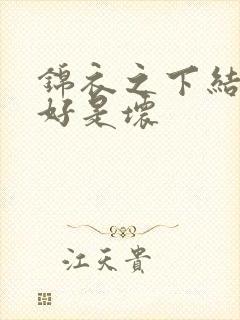 錦衣之下結
好是壞
江天貴